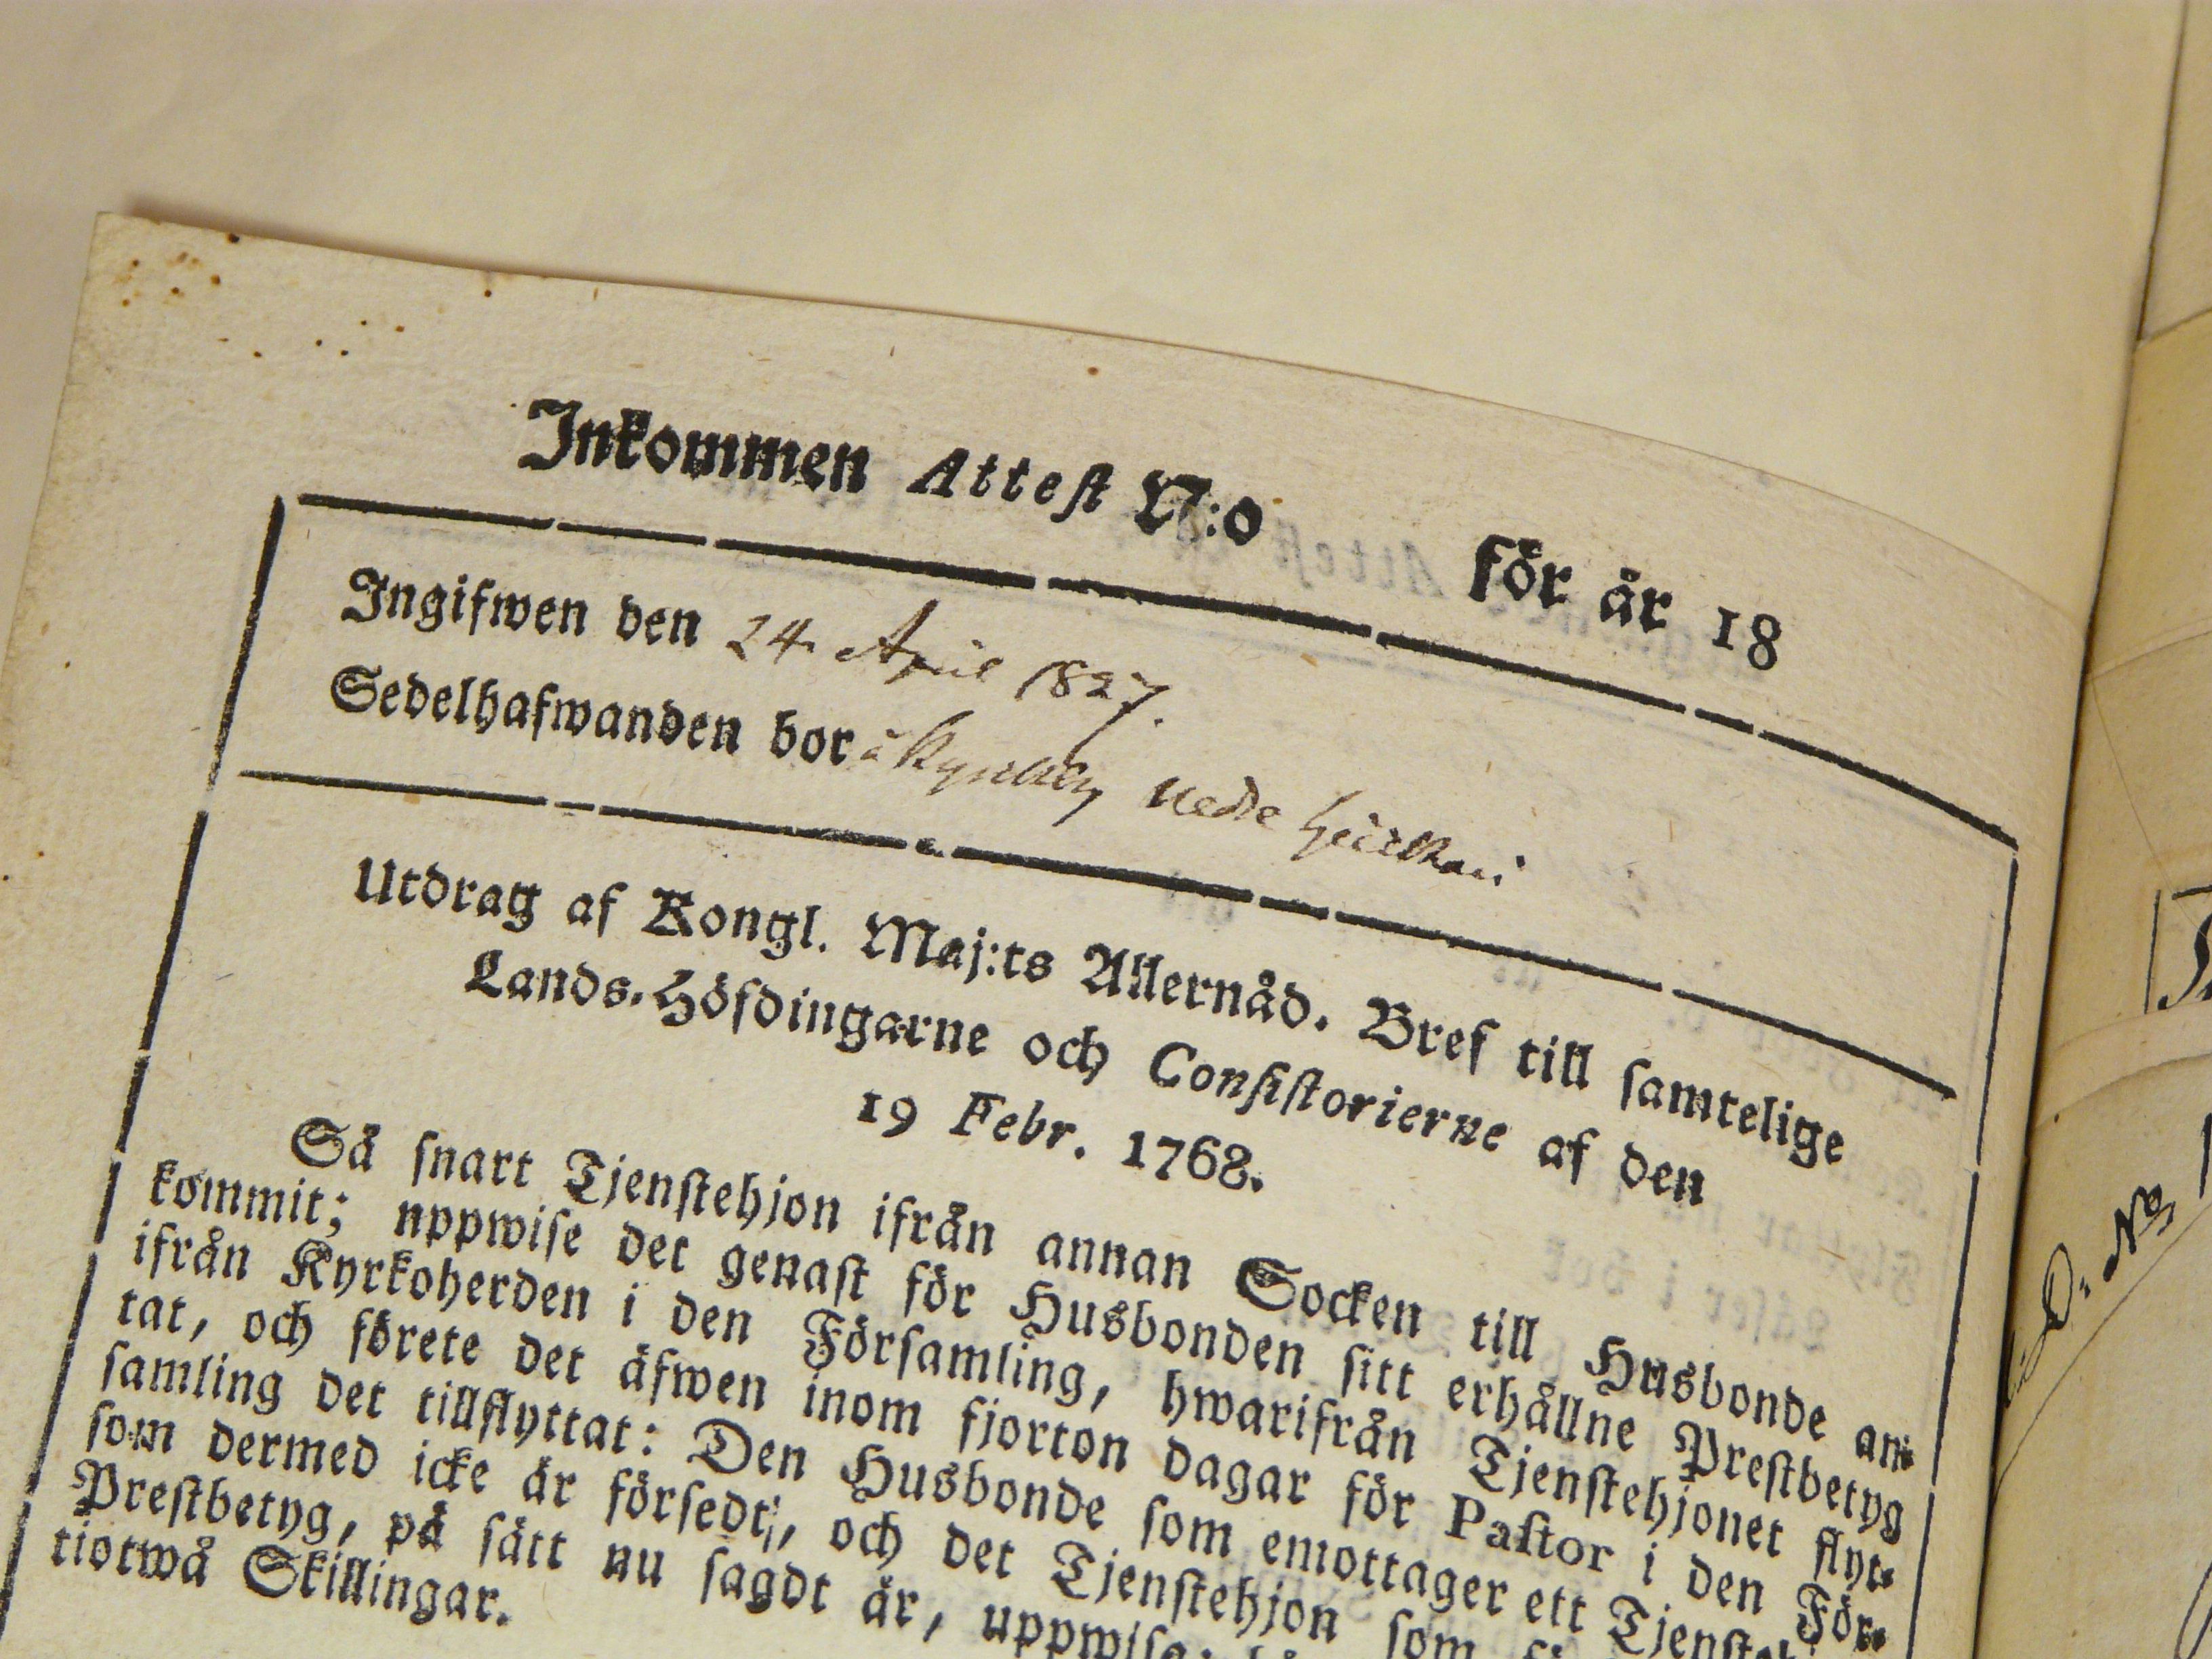 Inkommen Attest N:o för år 18
Ingifwen den 24. April 1827.
Sedelhafwanden bor å Nedre
Utdrag af Kongl. Maj:ts Allernåd. Bref till samtelige
Lands-Höfdingarne och Consistorierne af den
19 Febr. 1768.
Så snart Tjenstehjon ifrån annan Socken till Husbonde an-
kommit; nppwise det genast för Husbonden sitt erhållne Prestbetyg
ifrån Kyrkoherden i den Församling, hwarifrån Tjenstehjonet flyt-
tat, och förete det äfwen inom fjorton dagar för Pastor i den För-
samling det tillflyttat: Den Husbonde som emottager ett
som dermed icke är försedt, och det Tjenstehjon som
Prestbetyg, på sätt nu sagdt är,
tiotwå Skillingar.